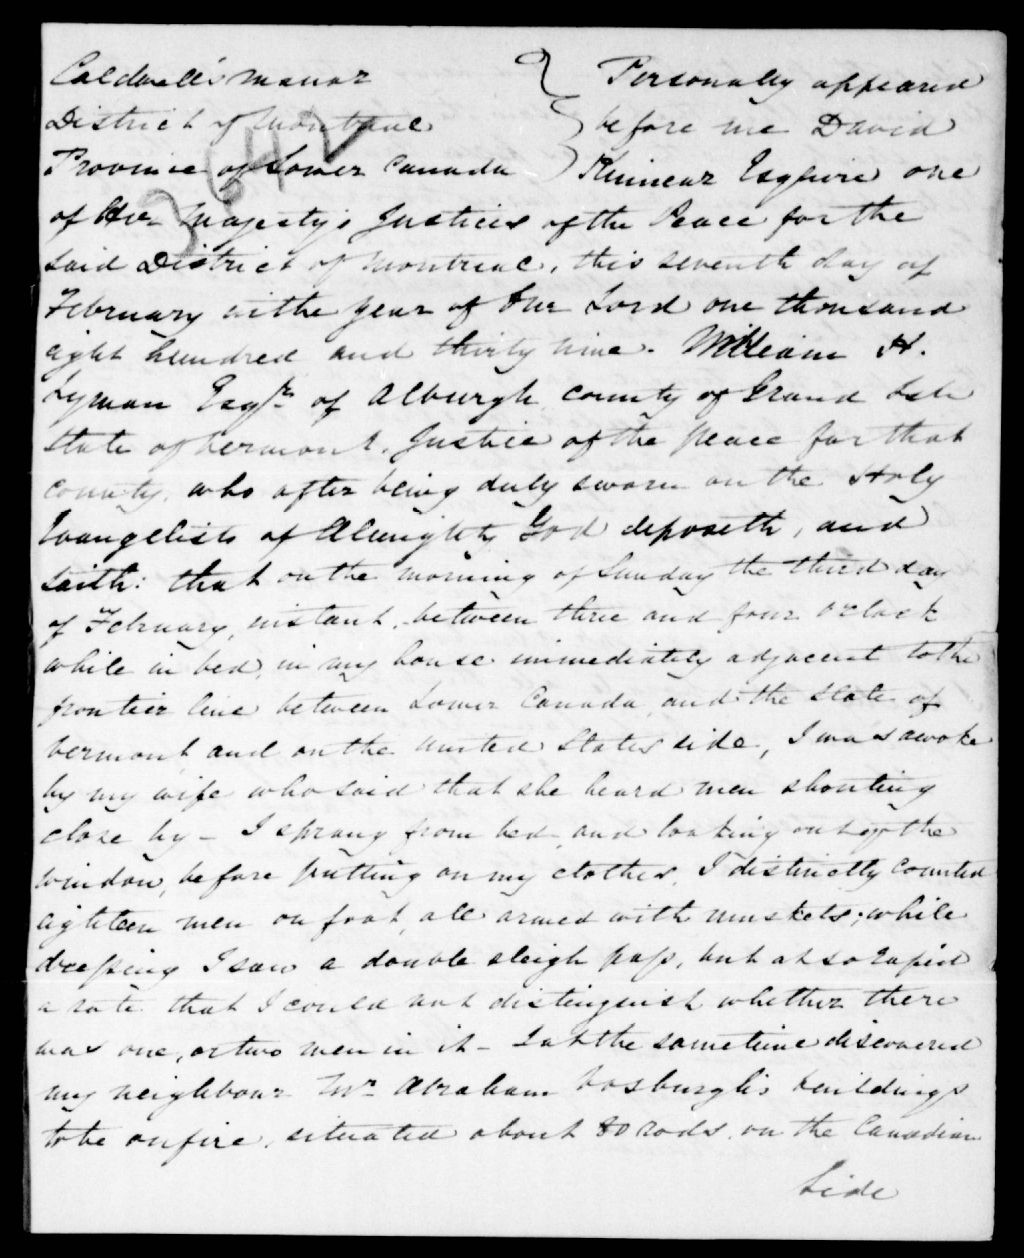 Caldwell's manor
District of Montreal
Province of Lower Canada
3642
Personally appeared
before me David
Kinnear Esquire one
of Her Majesty's Justices of the Peace for the
said District of Montreal, this seventh day of
February in the year of Our Lord one thousand
eight hundred and thirty nine. William H.
Lyman Esqr. of Alburgh county of Grand Isle
State of Vermont, Justice of the peace for that
county, who after being duly sworn on the Holy
Evangelists of Almighty God deposeth, and
saith: that on the morning of Sunday the third day
of February, instant, between three and four o'clock
while in bed, in my house immediately adjacent to the
frontier line between Lower Canada, and the State of
Vermont, and on the United States side, I was awoke
by my wife who said that she heard men shouting
close by - I sprang from bed, and looking out of the
window, before putting on my clothes, I distinctly counted
eighteen men on foot, all armed with muskets; while
dressing I saw a double sleigh pass, but at so rapid
a rate that I could not distinguish whether there
was one, or two men in it - I at the same time discovered
my neighbour Mr. Abraham Vosburgh's buildings
to be on fire, situated about 80 rods, on the Canadian
side